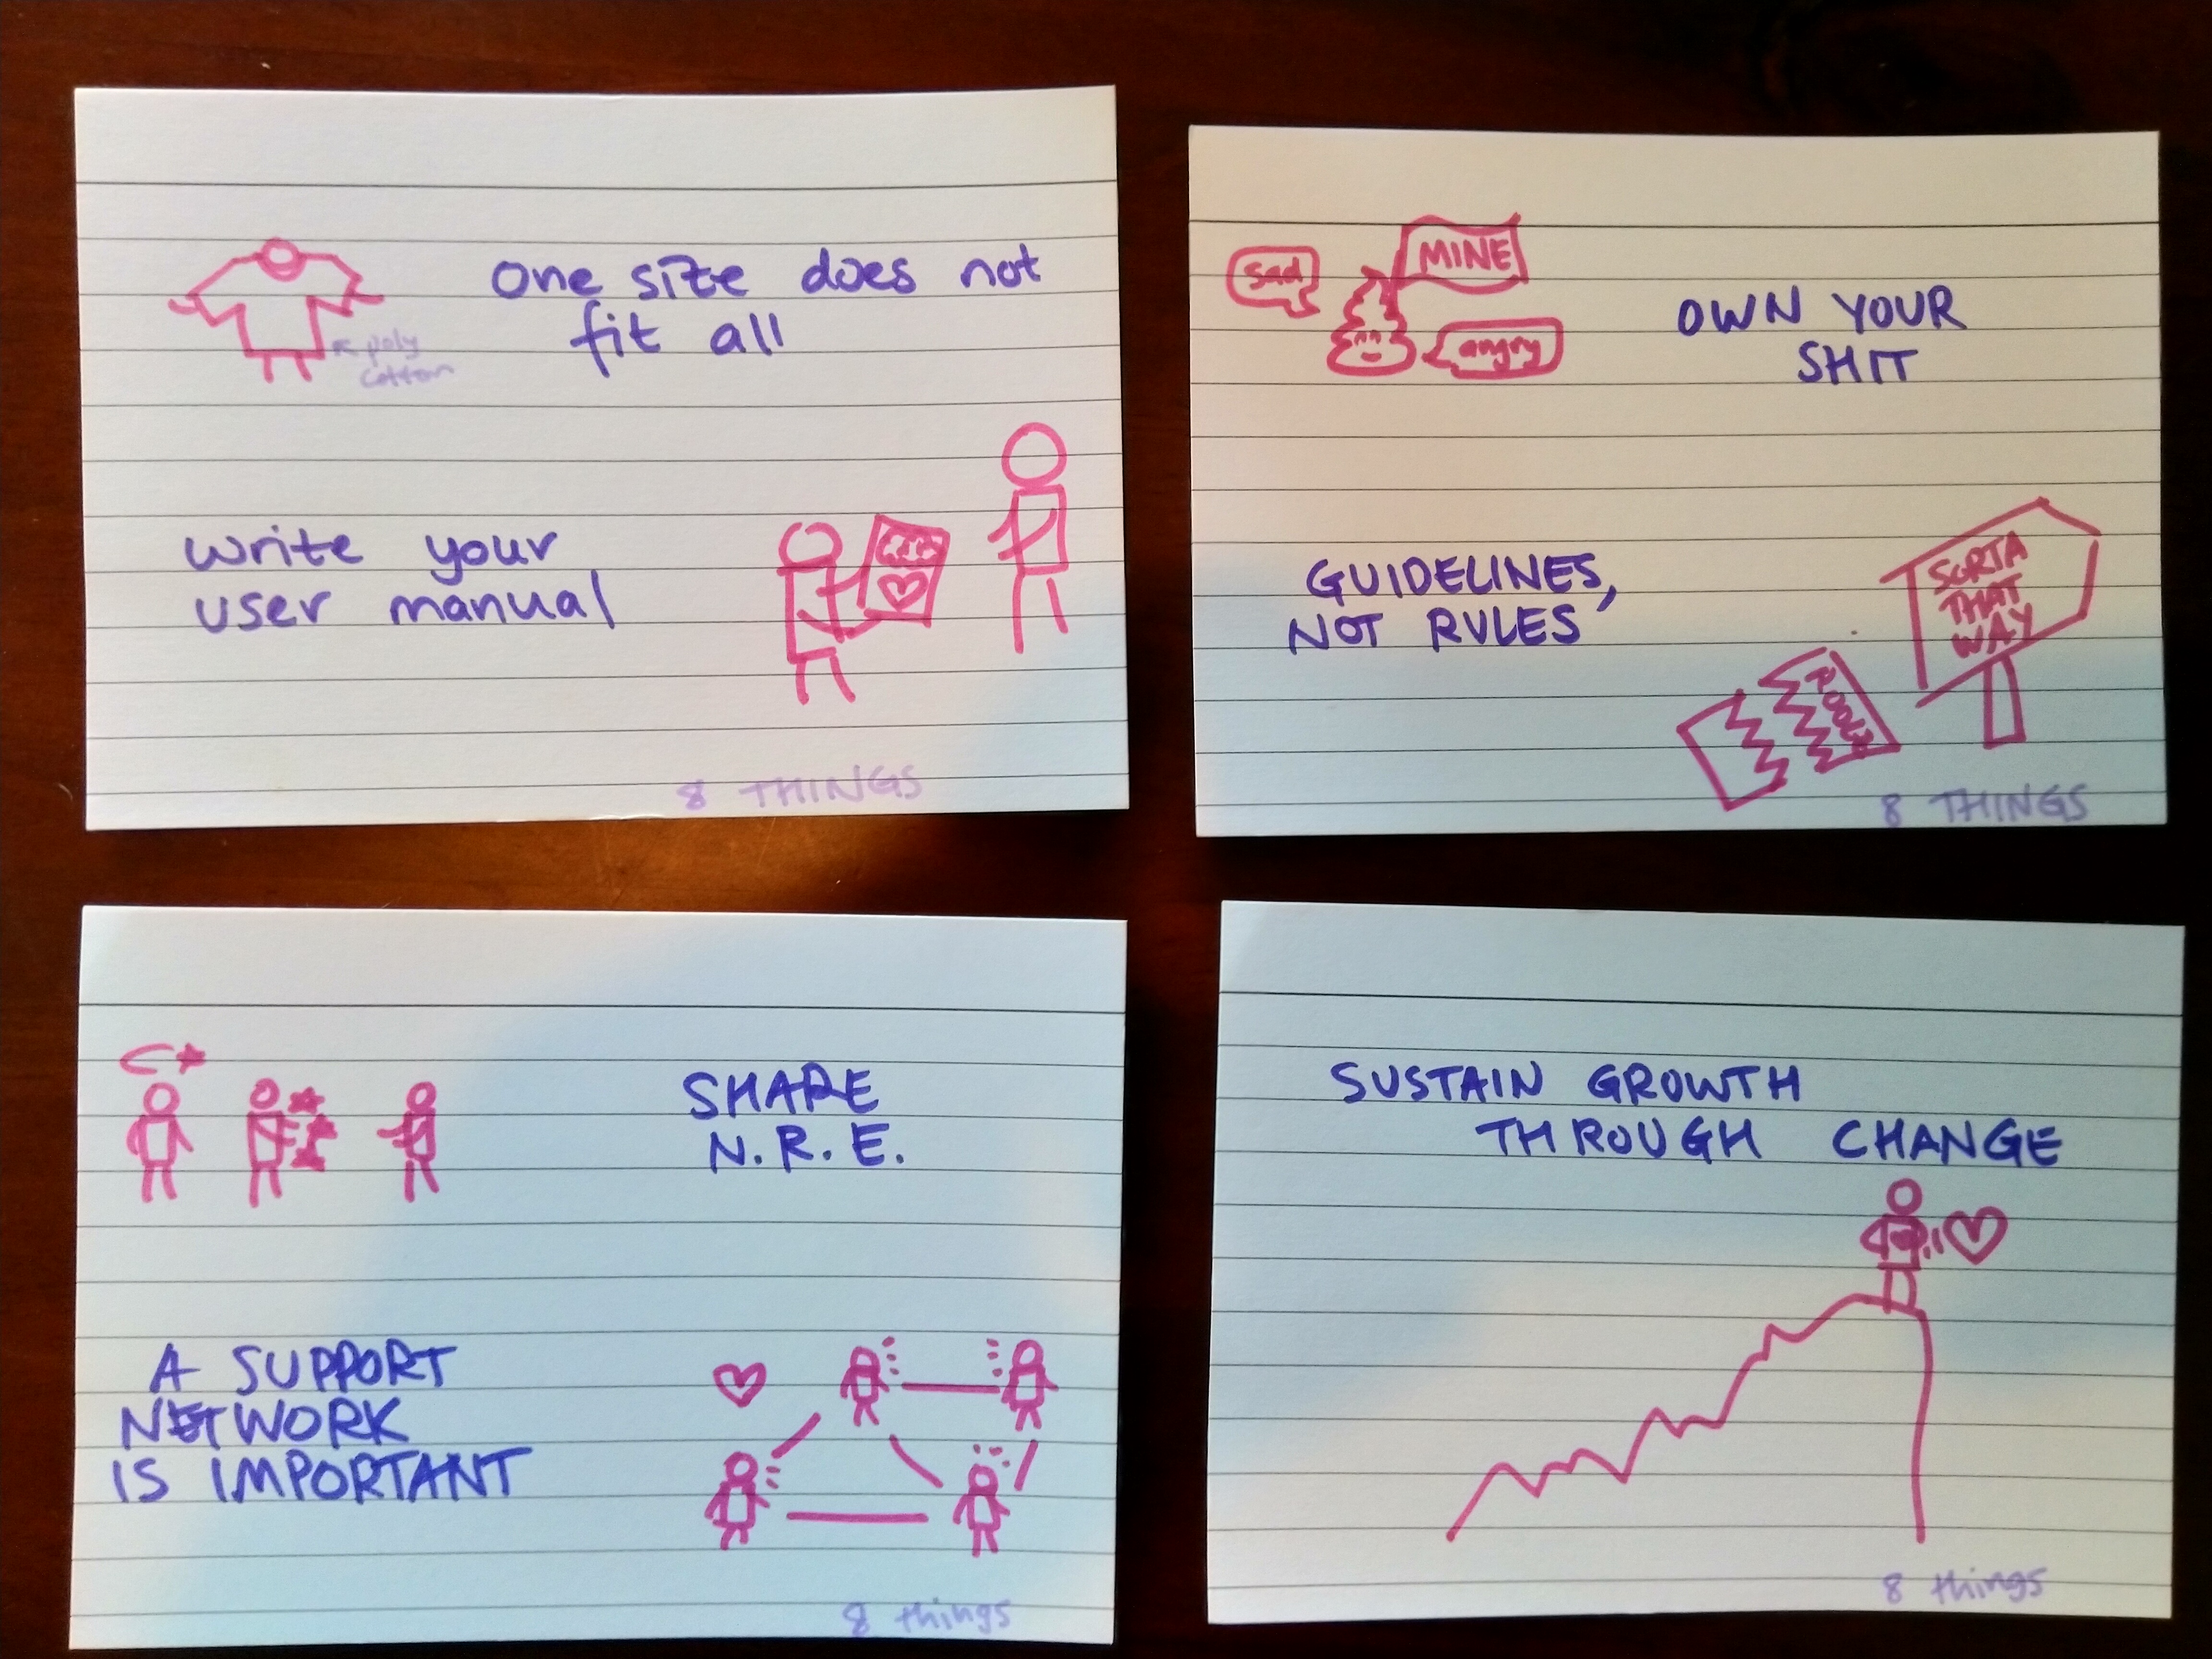 One size does not
fit all
poly
cotton
write your
user manual
8 THINGS
sad
MINE
angry
OWN YOUR
SHIT
GUIDELINES,
NOT RULES
SORTA
THAT
WAY
8 THINGS
SHARE
N.R.E.
A SUPPORT
NETWORK
IS IMPORTANT
8 things
SUSTAIN GROWTH
THROUGH CHANGE
8 things